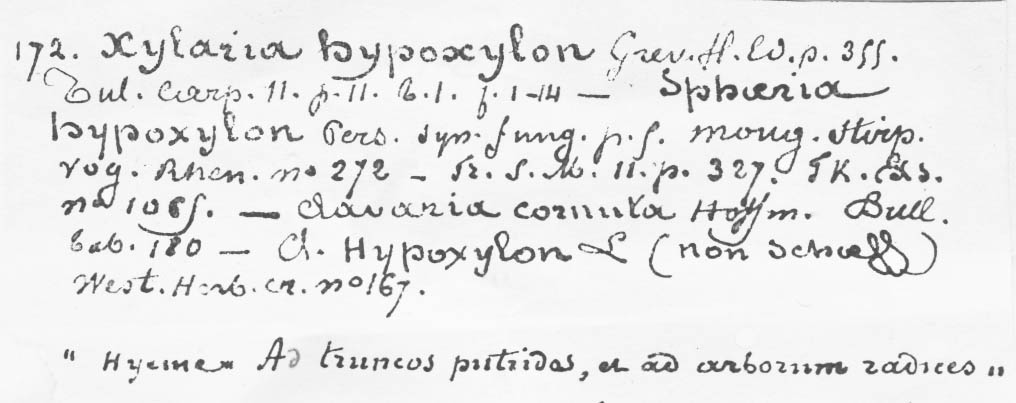 172. Xylaria hypoxylon Grev. fl. Ed. p. 355.
Tul. Carp. 11. p. 11. t. 1. f. 1-14 — Sphæria
hypoxylon Pers. syn. fung. p. 5. moug. stirp.
vog. Rhen. no 272 — Fr. S. M. 11. p. 327. FK. Exs.
no 1065. — Clavaria cornuta Hoffm. Bull.
tab. 180 — Cl. Hypoxylon L (non Schœff)
West. Herb. cr. no 167.
" Hyeme Ad truncos putridos, et ad arborum radices "